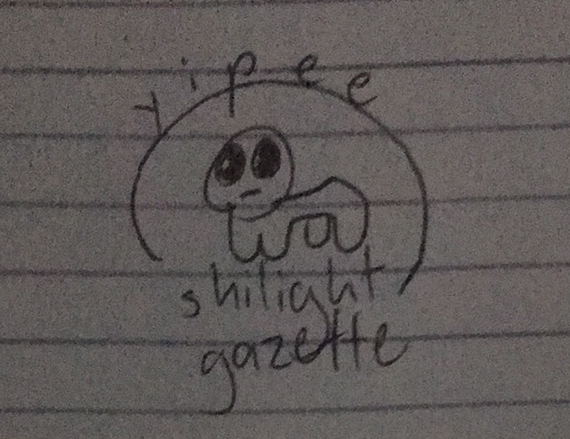 yipee
shilight
gazette